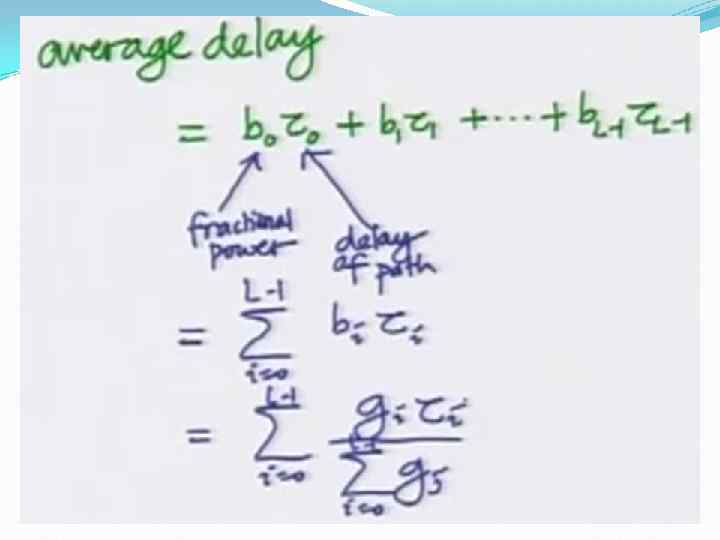 average delay
= b₀τ₀ + b₁τ₁ + ... + b_L-1 τ_L-1
fractional power
delay of path
L-1
= Σ bᵢ τᵢ
i=0
L-1
= Σ gᵢ τᵢ
i=0
L-1
Σ g₅
i=0